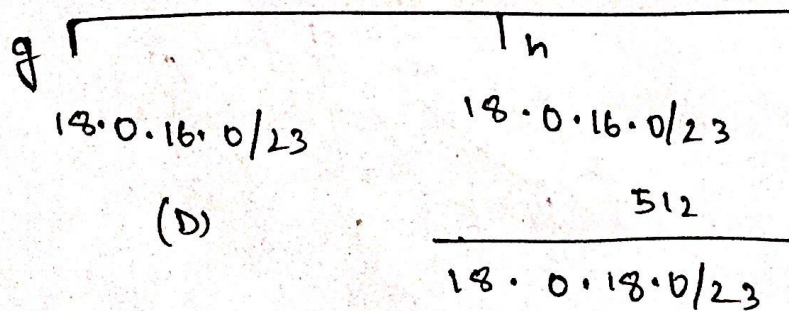 g h
18.0.16.0/23 18.0.16.0/23
(D) 512
18.0.18.0/23